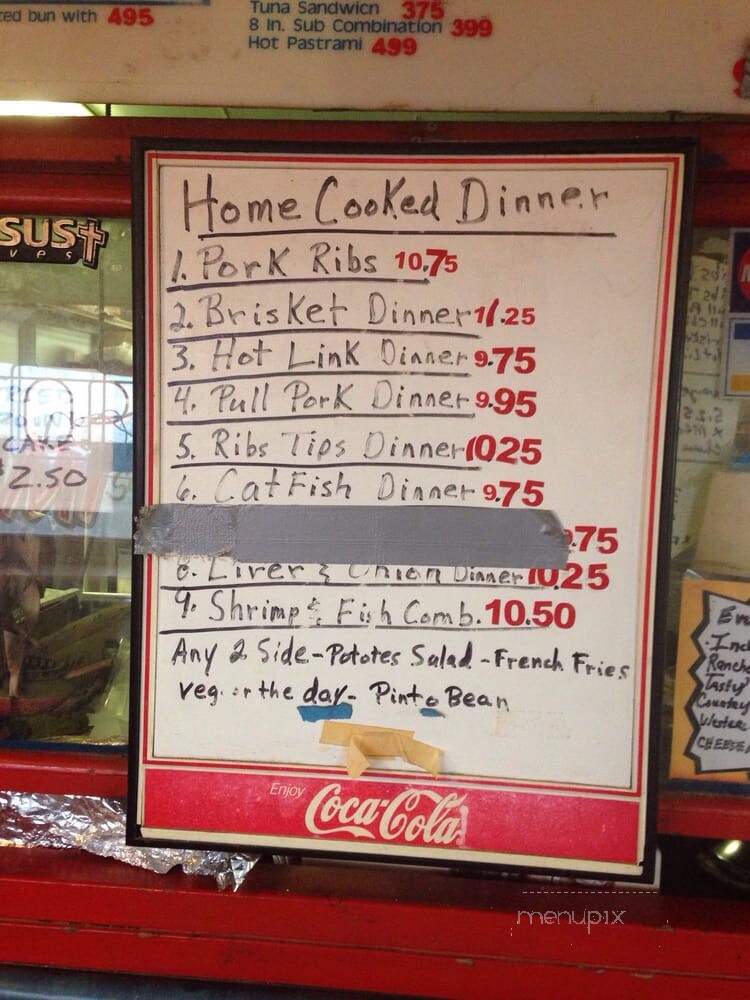 ed bun with 495
Tuna Sandwich 375
8 In. Sub Combination 399
Hot Pastrami 499
Home Cooked Dinner
1. Pork Ribs 10.75
2. Brisket Dinner 11.25
3. Hot Link Dinner 9.75
4. Pull Pork Dinner 9.95
5. Ribs Tips Dinner 10 25
6. CatFish Dinner 9.75
.75
8. Liver & Onion Dinner 10.25
9. Shrimp & Fish Comb. 10.50
Any 2 Side - Pototes Salad - French Fries
veg. or the day - Pinto Bean
Enjoy
Coca-Cola
SUS
CAKE
2.50
Ranch
Tasty
Country
CHEESE
menupix